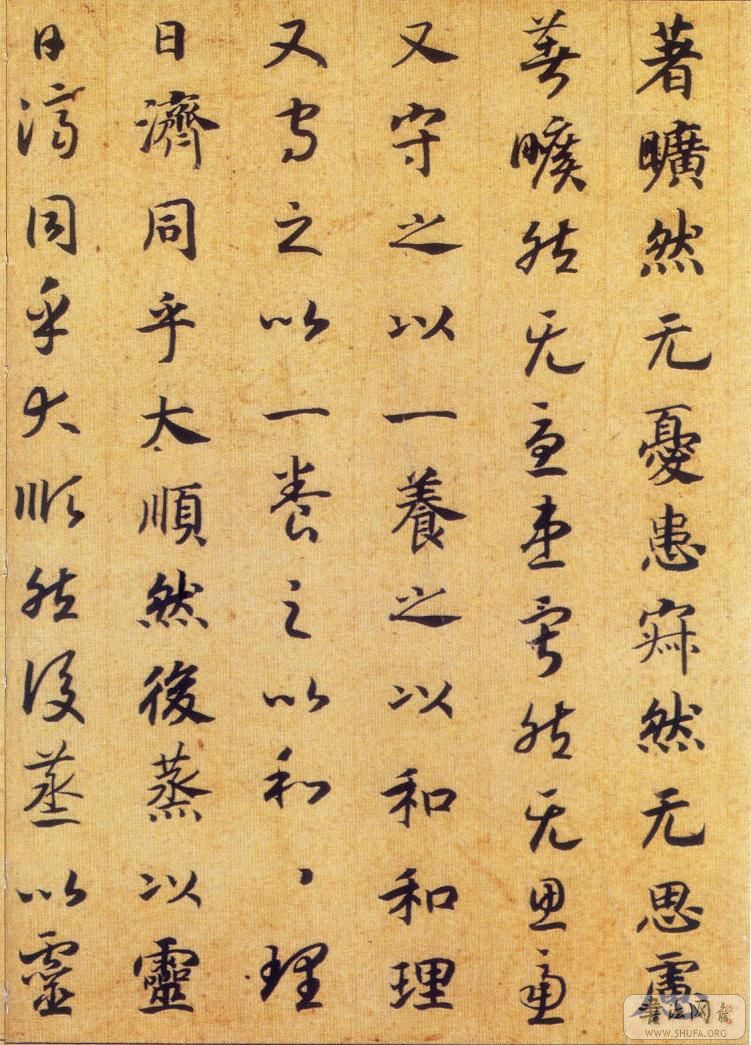 著曠然无憂患寂然无思慮
著曠然无憂患寂然无思慮
又守之以一養之以和和理
又守之以一養之以和、理
日濟同乎大順然後蒸以靈
日濟同乎大順然後蒸以靈
書法网
WWW.SHUFA.ORG